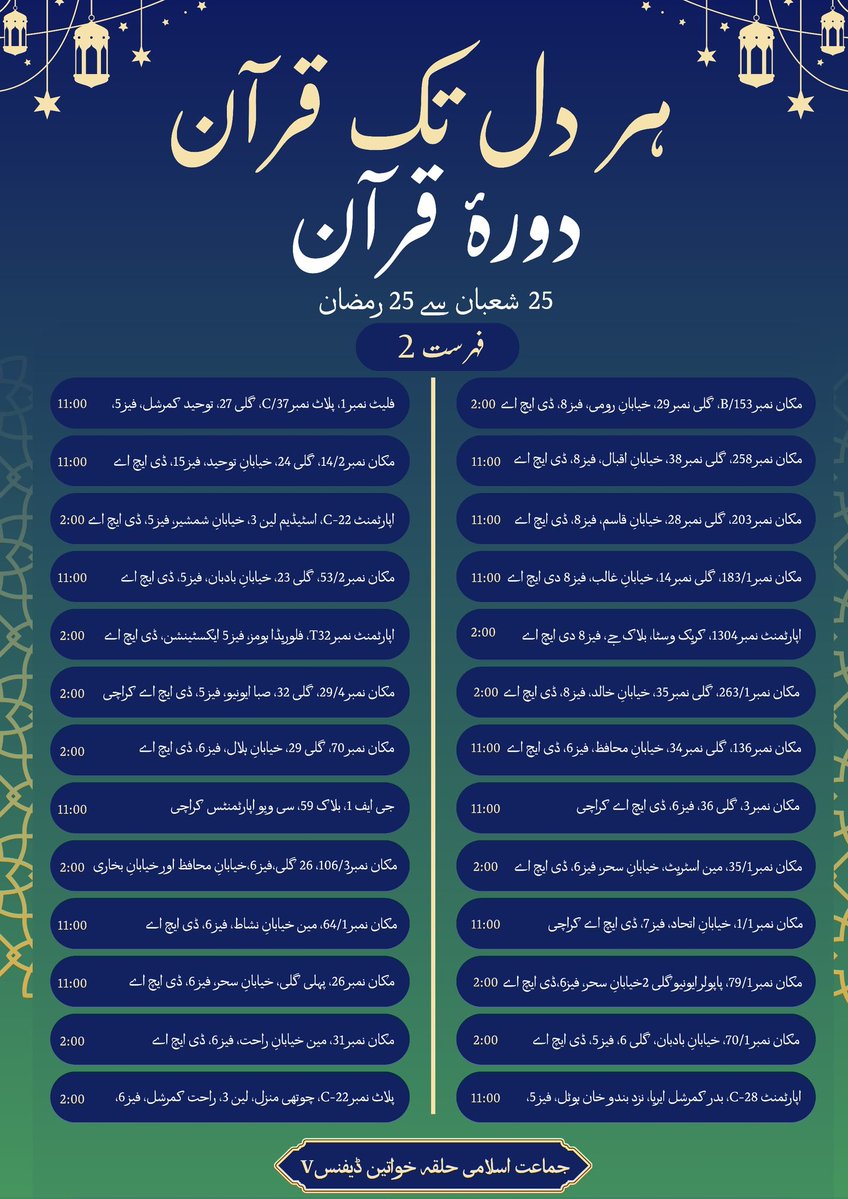 ہر دل تک قرآن
دورۂ قرآن
25 شعبان سے 25 رمضان
فہرست 2
مکان نمبر153/B، گلی نمبر29، خیابانِ رومی، فیز8، ڈی ایچ اے 2:00
مکان نمبر258، گلی نمبر38، خیابانِ اقبال، فیز8، ڈی ایچ اے 11:00
مکان نمبر203، گلی نمبر28، خیابانِ قاسم، فیز8، ڈی ایچ اے 11:00
مکان نمبر183/1، گلی نمبر14، خیابانِ غالب، فیز8 دی ایچ اے 11:00
اپارٹمنٹ نمبر1304، کریک وسٹا، بلاک جے، فیز8 دی ایچ اے 2:00
مکان نمبر263/1، گلی نمبر35، خیابانِ خالد، فیز8، ڈی ایچ اے 2:00
مکان نمبر136، گلی نمبر34، خیابانِ محافظ، فیز6، ڈی ایچ اے 11:00
مکان نمبر3، گلی 36، فیز6، ڈی ایچ اے کراچی 11:00
مکان نمبر35/1، مین اسٹریٹ، خیابانِ سحر، فیز6، ڈی ایچ اے 2:00
مکان نمبر1/1، خیابانِ اتحاد، فیز7، ڈی ایچ اے کراچی 11:00
مکان نمبر79/1، پاپولرایونیوگلی 2خیابانِ سحر، فیز6،ڈی ایچ اے 2:00
مکان نمبر70/1، خیابانِ بادبان، گلی 6، فیز5، ڈی ایچ اے 2:00
اپارٹمنٹ C-28، بدر کمرشل ایریا، نزد بندو خان ہوٹل، فیز5، 11:00
فلیٹ نمبر1، پلاٹ نمبر37/C، گلی 27، توحید کمرشل، فیز5، 11:00
مکان نمبر14/2، گلی 24، خیابانِ توحید، فیز15، ڈی ایچ اے 11:00
اپارٹمنٹ C-22، اسٹیڈیم لین 3، خیابانِ شمشیر، فیز5، ڈی ایچ اے 2:00
مکان نمبر53/2، گلی 23، خیابانِ بادبان، فیز5، ڈی ایچ اے 11:00
اپارٹمنٹ نمبرT32، فلوریڈا ہومز، فیز5 ایکسٹینشن، ڈی ایچ اے 2:00
مکان نمبر29/4، گلی 32، صبا ایونیو، فیز5، ڈی ایچ اے کراچی 2:00
مکان نمبر70، گلی 29، خیابانِ بلال، فیز6، ڈی ایچ اے 2:00
جی ایف 1، بلاک 59، سی ویو اپارٹمنٹس کراچی 11:00
مکان نمبر106/3، 26 گلی،فیز6،خیابانِ محافظ اور خیابانِ بخاری 2:00
مکان نمبر64/1، مین خیابانِ نشاط، فیز6، ڈی ایچ اے 11:00
مکان نمبر26، پہلی گلی، خیابانِ سحر، فیز6، ڈی ایچ اے 11:00
مکان نمبر31، مین خیابانِ راحت، فیز6، ڈی ایچ اے 2:00
پلاٹ نمبرC-22، چوتھی منزل، لین 3، راحت کمرشل، فیز6، 2:00
جماعت اسلامی حلقہ خواتین ڈیفنسV